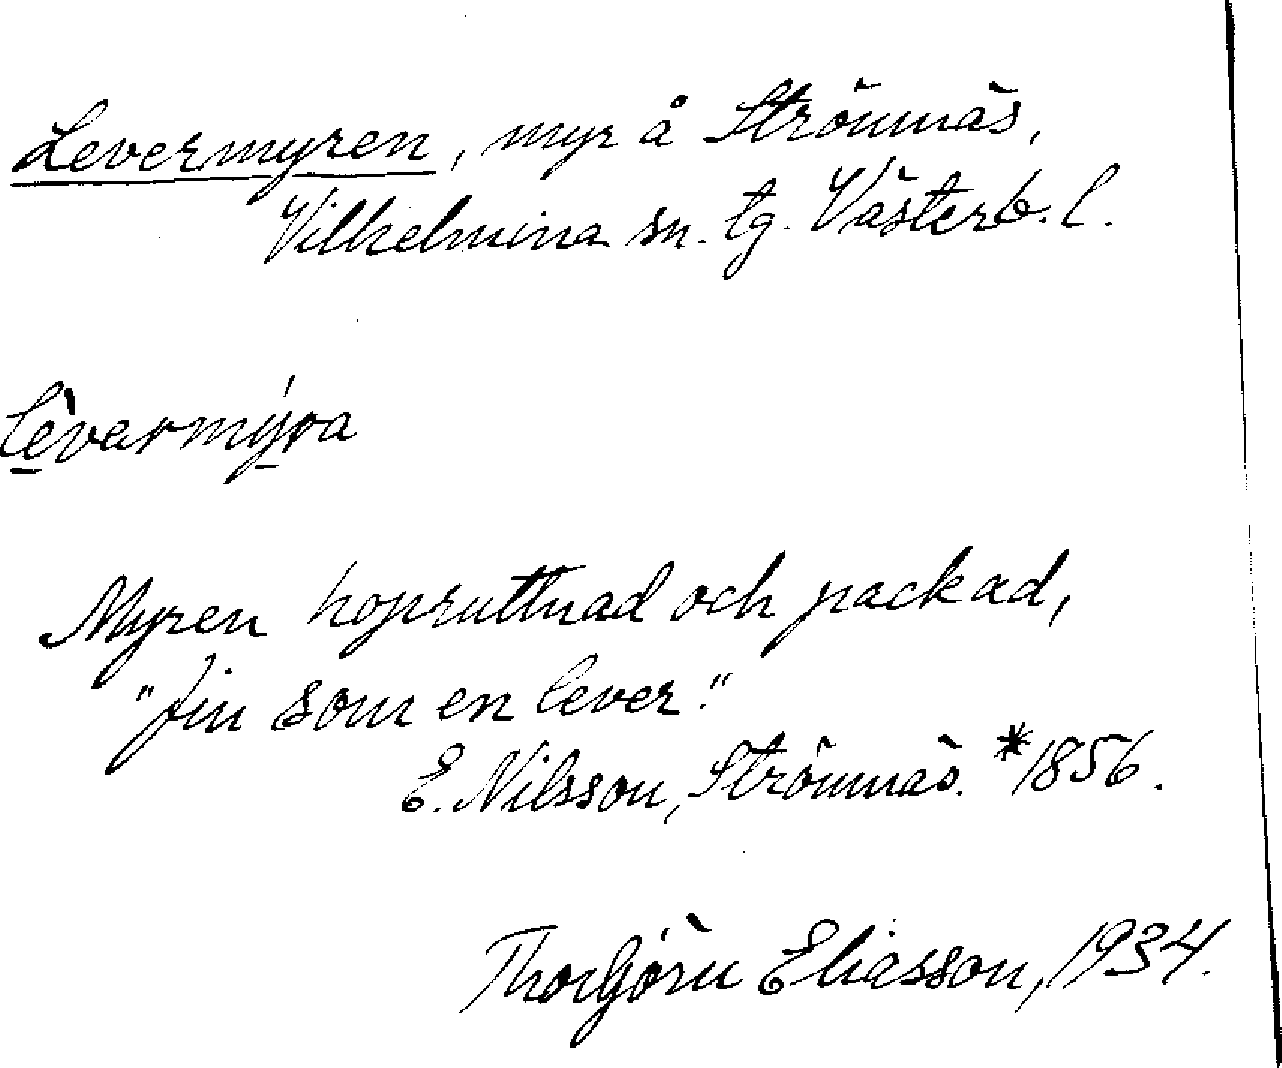 Levermyren, myr å Strömnäs,
Vilhelmina sn. tg. Västerb. l.
lèvarmýra
Myren hopruttnad och packad,
"fin som en lever."
E. Nilsson, Strömnäs. *1856.
Thorbjörn Eliasson, 1934.